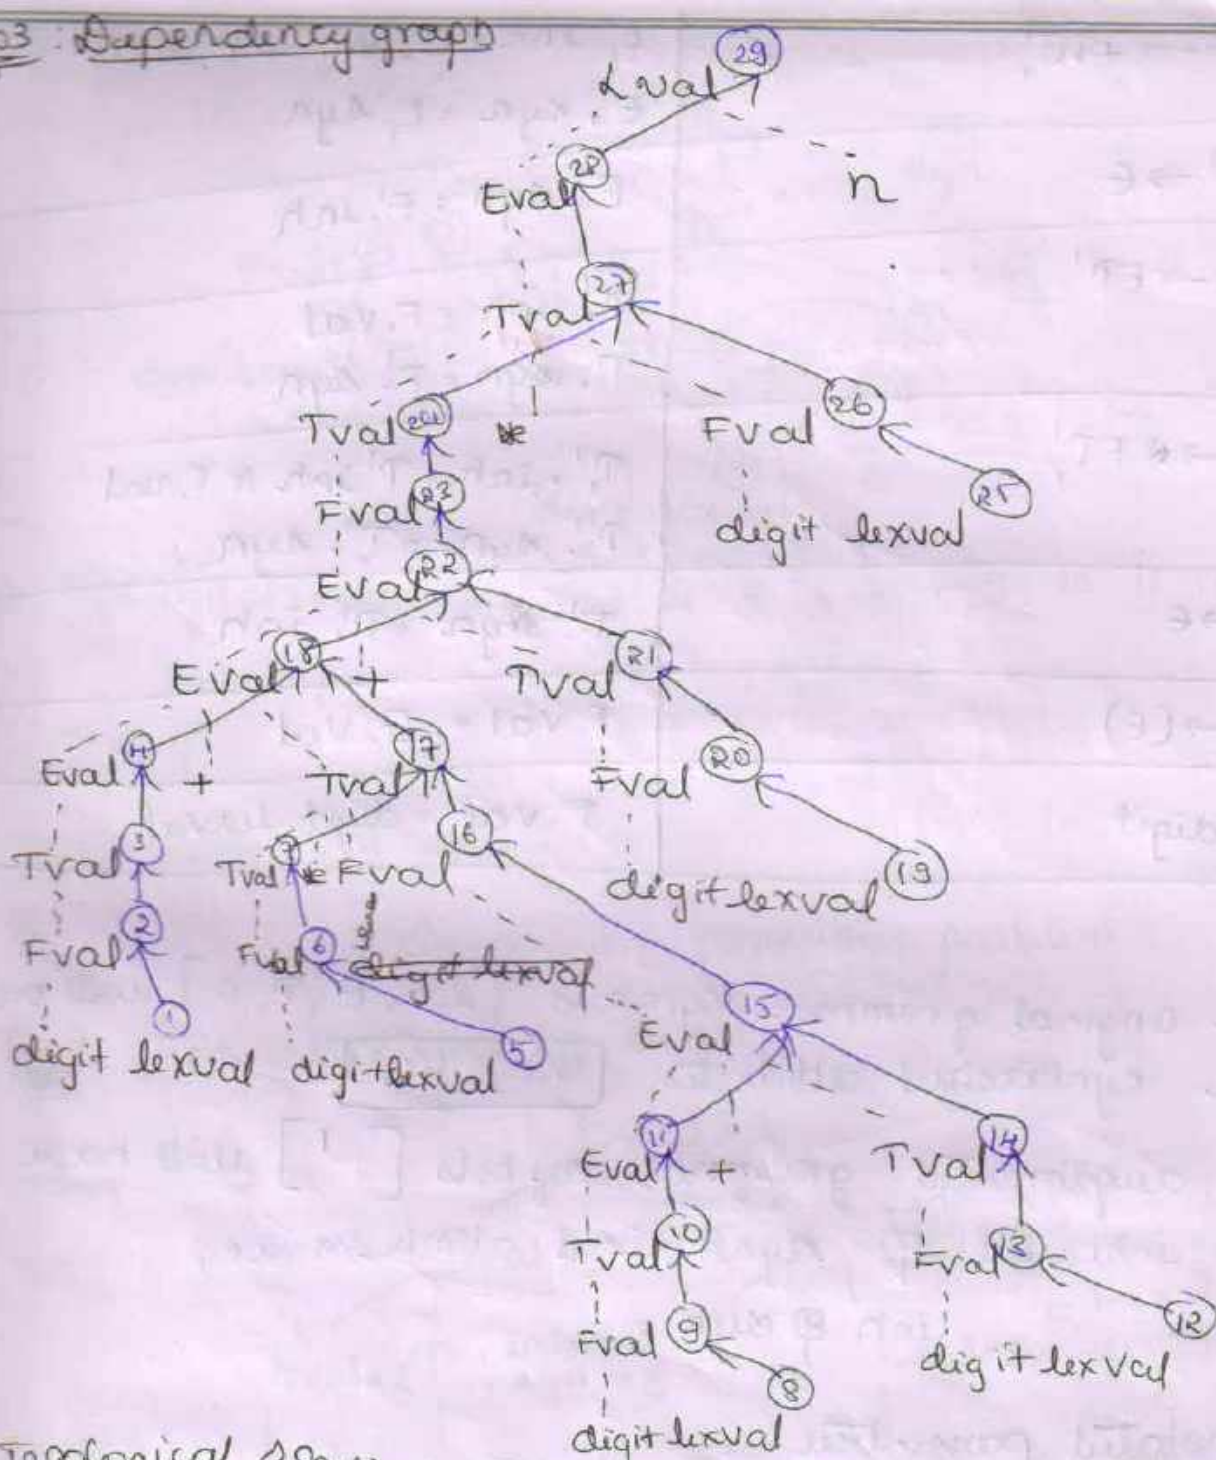 3 : Dependency graph
29
L val
28
Eval
n
27
Tval
Tval 24 * Fval 26
23
Fval
25
digit lexval
22
Eval
18
Eval + Tval 21
4
Eval + Tval 17 Fval 20
3
Tval
7
Tval * Fval 16
digit lexval 19
2
Fval
Fval 6 digit lexval
15
Eval
1
5
digit lexval digit lexval
11
Eval + Tval 14
10
Tval
Fval 13
12
Fval 9
digit lexval
8
digit lexval
Topological